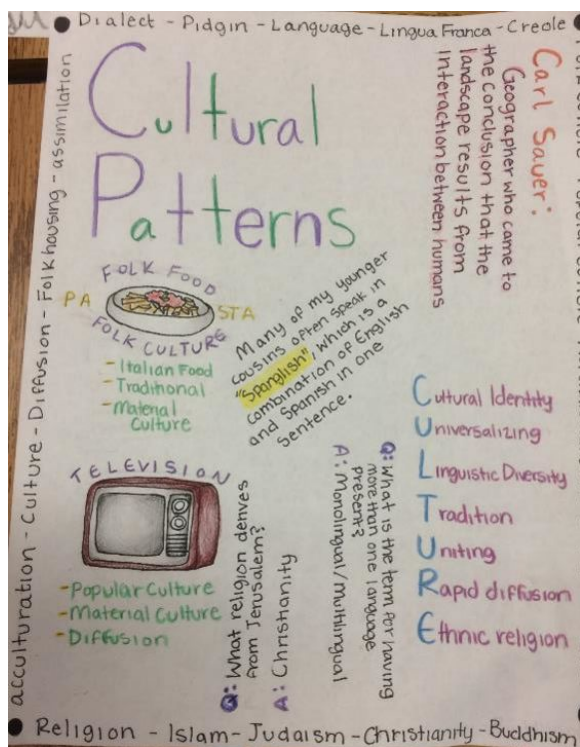 Dialect - Pidgin - Language - Lingua Franca - Creole
Cultural
Patterns
Carl Sauer:
Geographer who came to
the conclusion that the
landscape results from
interaction between humans
acculturation - Culture - Diffusion - Folkhousing - assimilation
FOLK FOOD
PA
STA
FOLK CULTURE
- Italian Food
- Traditional
- Material
Culture
Many of my younger
cousins often speak in
"Spanglish", which is a
combination of English
and Spanish in one
Sentence.
TELEVISION
- Popular Culture
- Material Culture
- Diffusion
Q: What religion derives
from Jerusalem?
A: Christianity
Q: What is the term for having
more than one language
present?
A: Monolingual/multilingual
Cultural Identity
Universalizing
Linguistic Diversity
Tradition
Uniting
Rapid diffusion
Ethnic religion
Religion - Islam - Judaism - Christianity - Buddhism